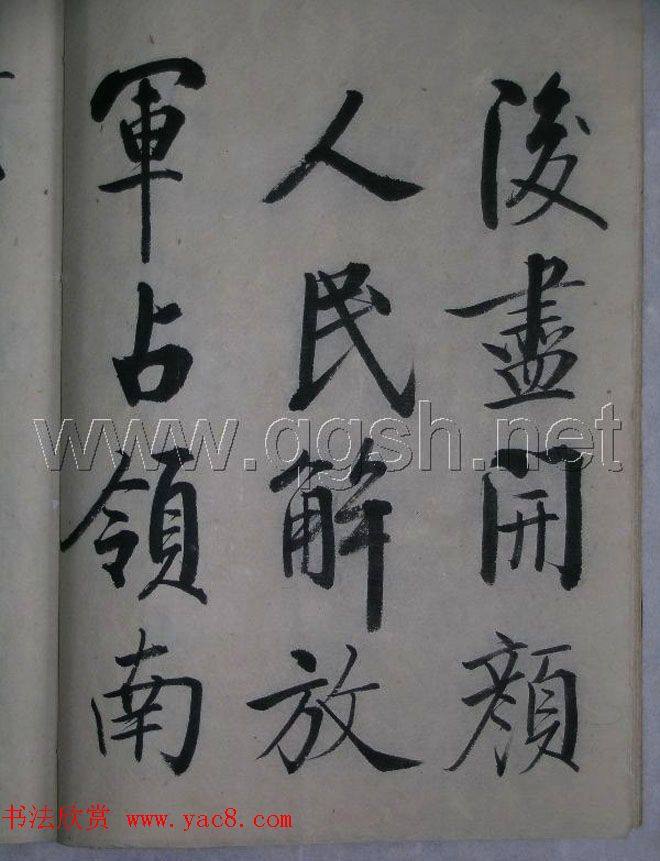 後盡開顏
人民解放
軍占領南
www.qgsh.net
书法欣赏 www.yac8.com